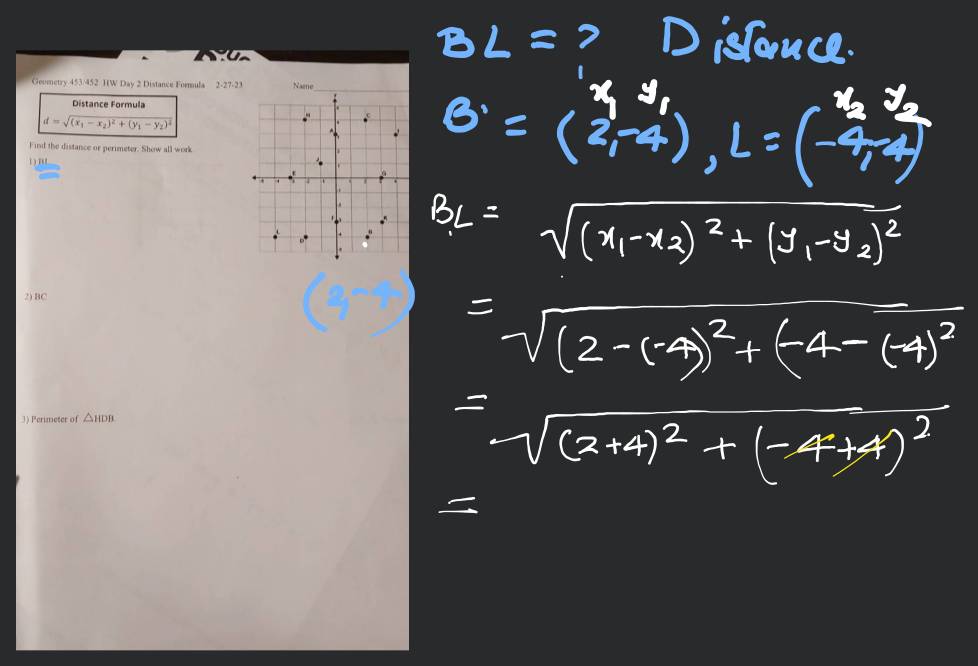 Geometry 453/452 HW Day 2 Distance Formula 2-27-23 Name
Distance Formula
d = √(x₁ − x₂)² + (y₁ − y₂)²
Find the distance or perimeter. Show all work.
1) BL
2) BC
3) Perimeter of △HDB.
(2,-4)
BL = ? Distance.
x₁ y₁ x₂ y₂
B = (2,-4), L = (-4,-4)
BL =
√(x₁-x₂)² + (y₁-y₂)²
= √(2-(-4))² + (-4-(-4)²
= √(2+4)² + (-4+4)²
=